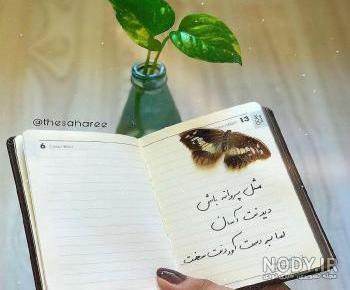 @thesaharee
6
13
مثل پروانه باش
دیدنت آسان
اما به دست آوردنت سخت
NODY.IR